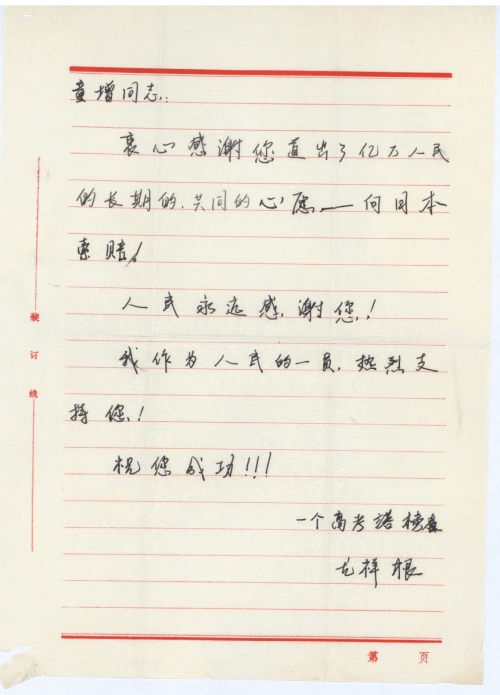 童增同志:
衷心感谢您直出了亿万人民
的长期的、共同的心愿——向日本
索赔!
人民永远感谢您!
我作为人民的一员,热烈支
持您!
祝您成功!!!
一个高考落榜者
祥根
装订线
第 页